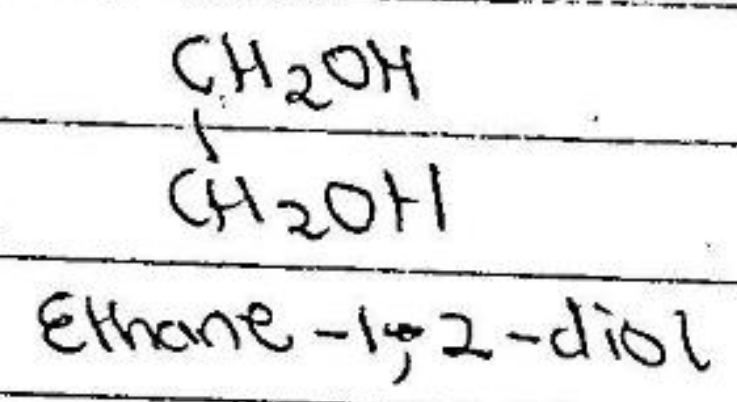 CH₂OH
CH₂OH
Ethane-1,2-diol